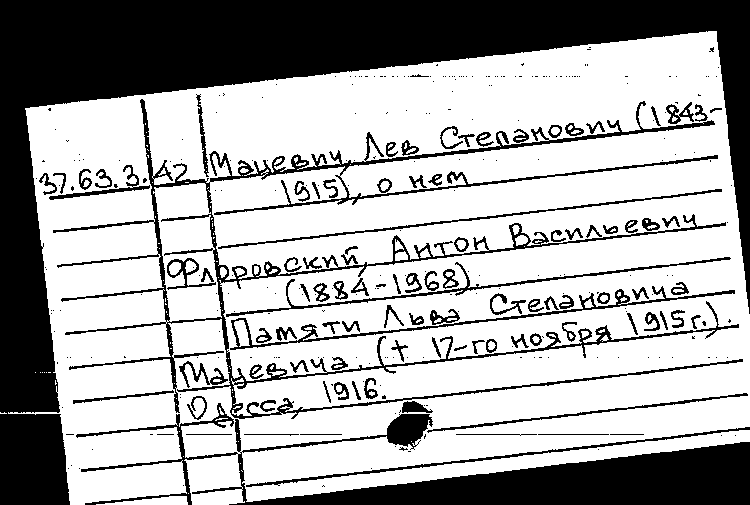 37.63.3.42 Мацевич, Лев Степанович (1843-
1915), о нем
Флоровский, Антон Васильевич
(1884-1968).
Памяти Льва Степановича
Мацевича. († 17-го ноября 1915 г.).
Одесса, 1916.